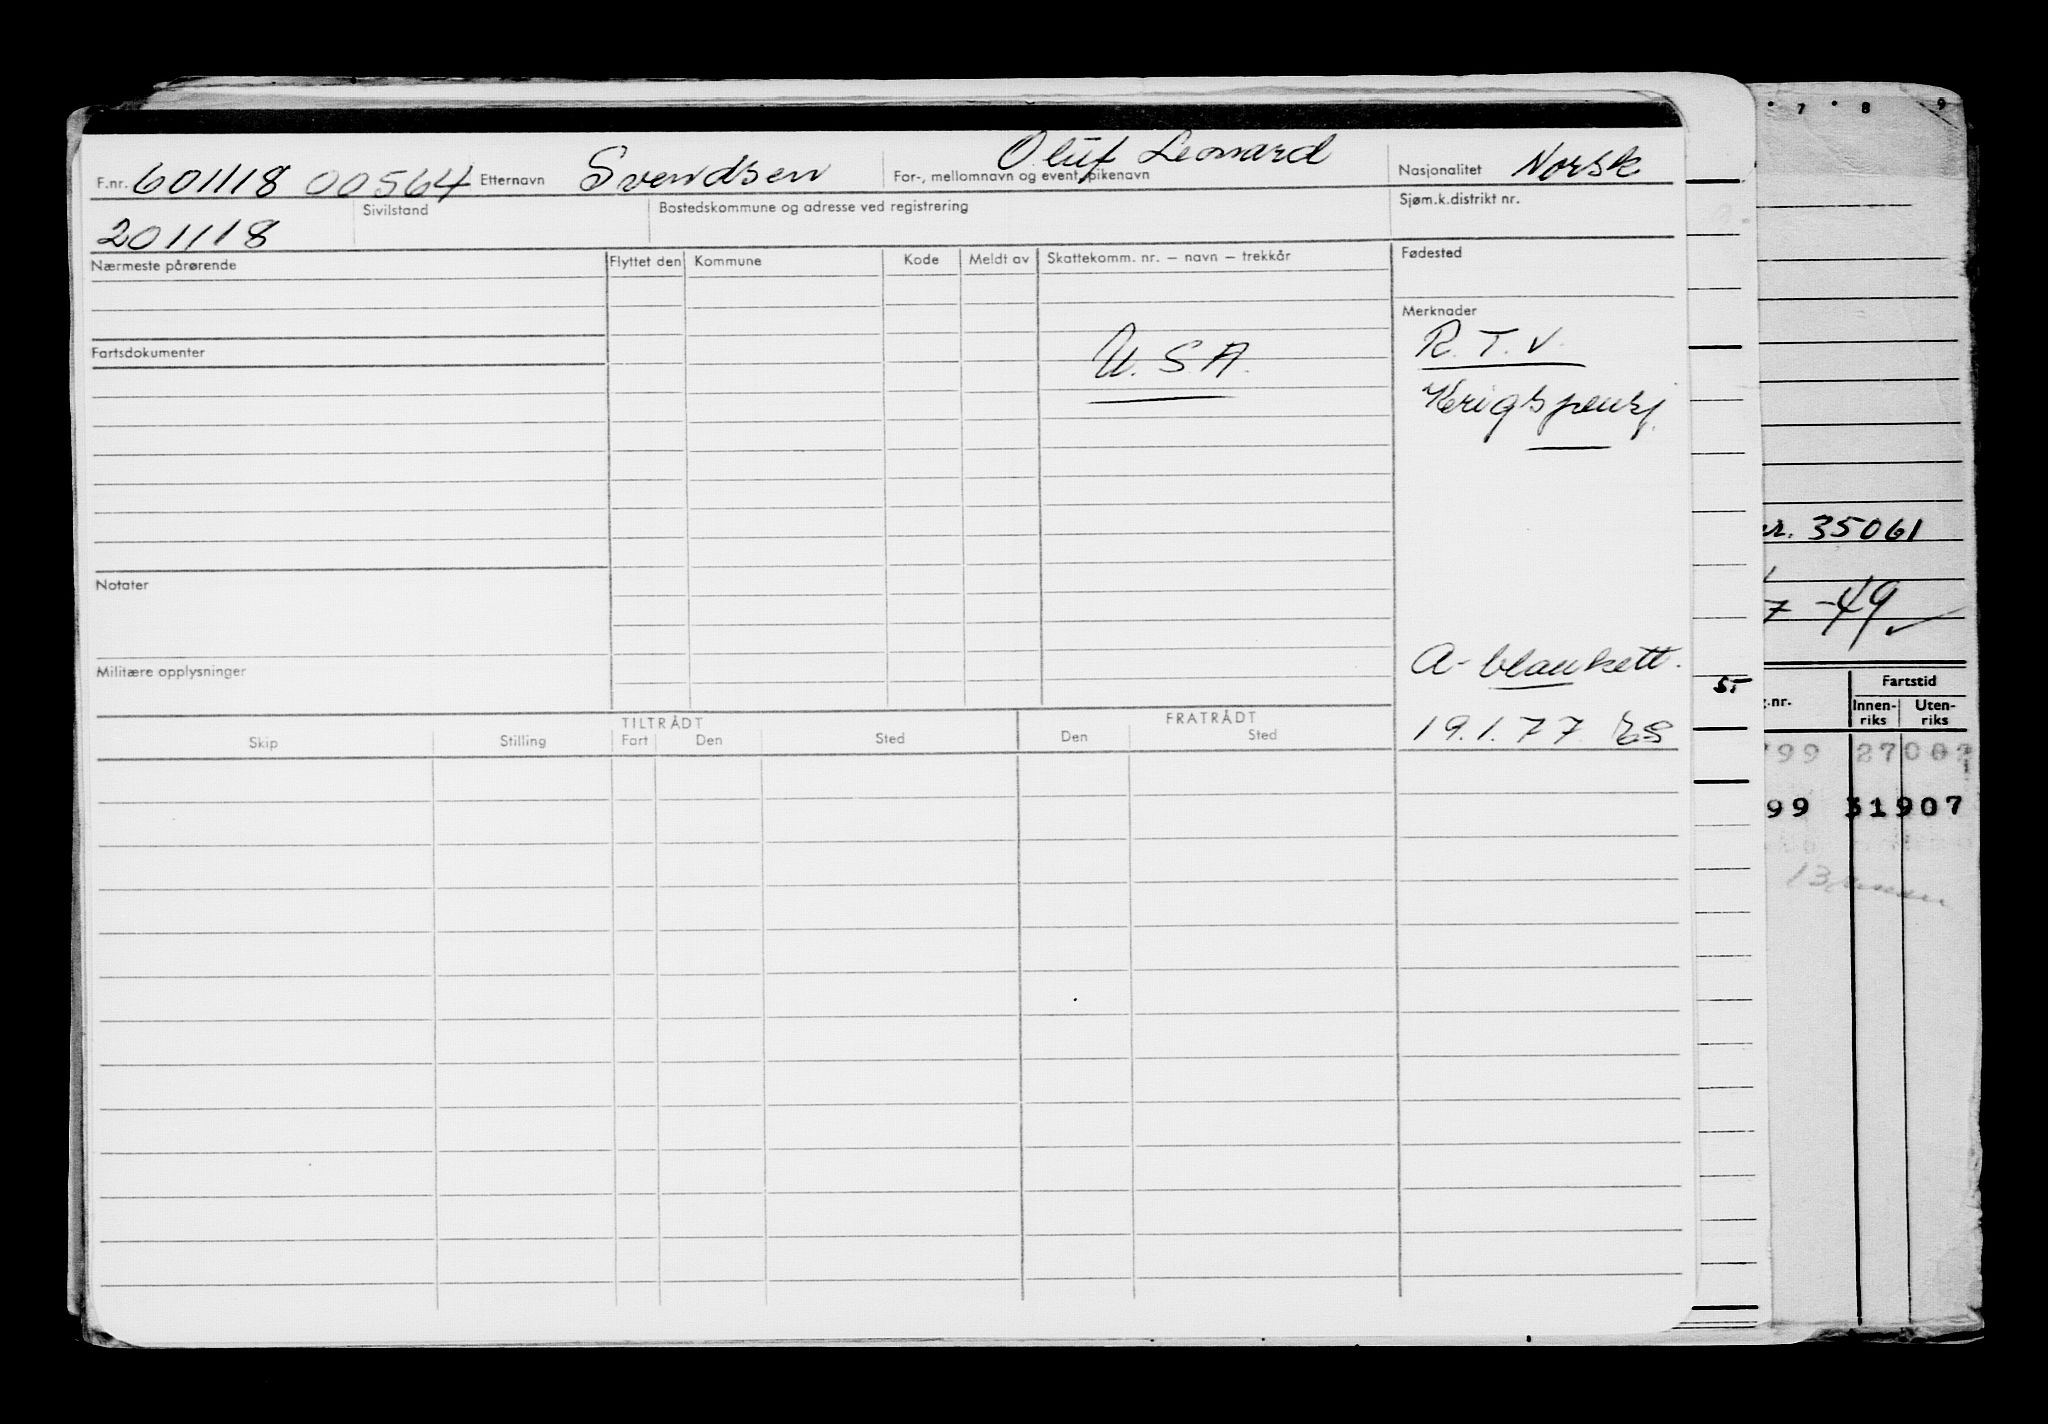 F.nr. 601118 00564 Etternavn Svendsen For-, mellomnavn og event. pikenavn Oluf Leonard Nasjonalitet Norsk
201118 Sivilstand Bostedskommune og adresse ved registrering Sjøm.k.distrikt nr.
Nærmeste pårørende Flyttet den Kommune Kode Meldt av Skattekomm. nr. — navn — trekkår Fødested
Merknader
U.S.A. R.T.V.
Fartsdokumenter
Krigspensj.
Notater
Militære opplysninger
A-blankett.
19.1.77. ES
TILTRÅDT FRATRÅDT
Skip Stilling Fart Den Sted Den Sted
7 8 9
nr. 35061
7 -49
5.
.nr. Fartstid
Innen-riks Uten-riks
99 2700
99 31907